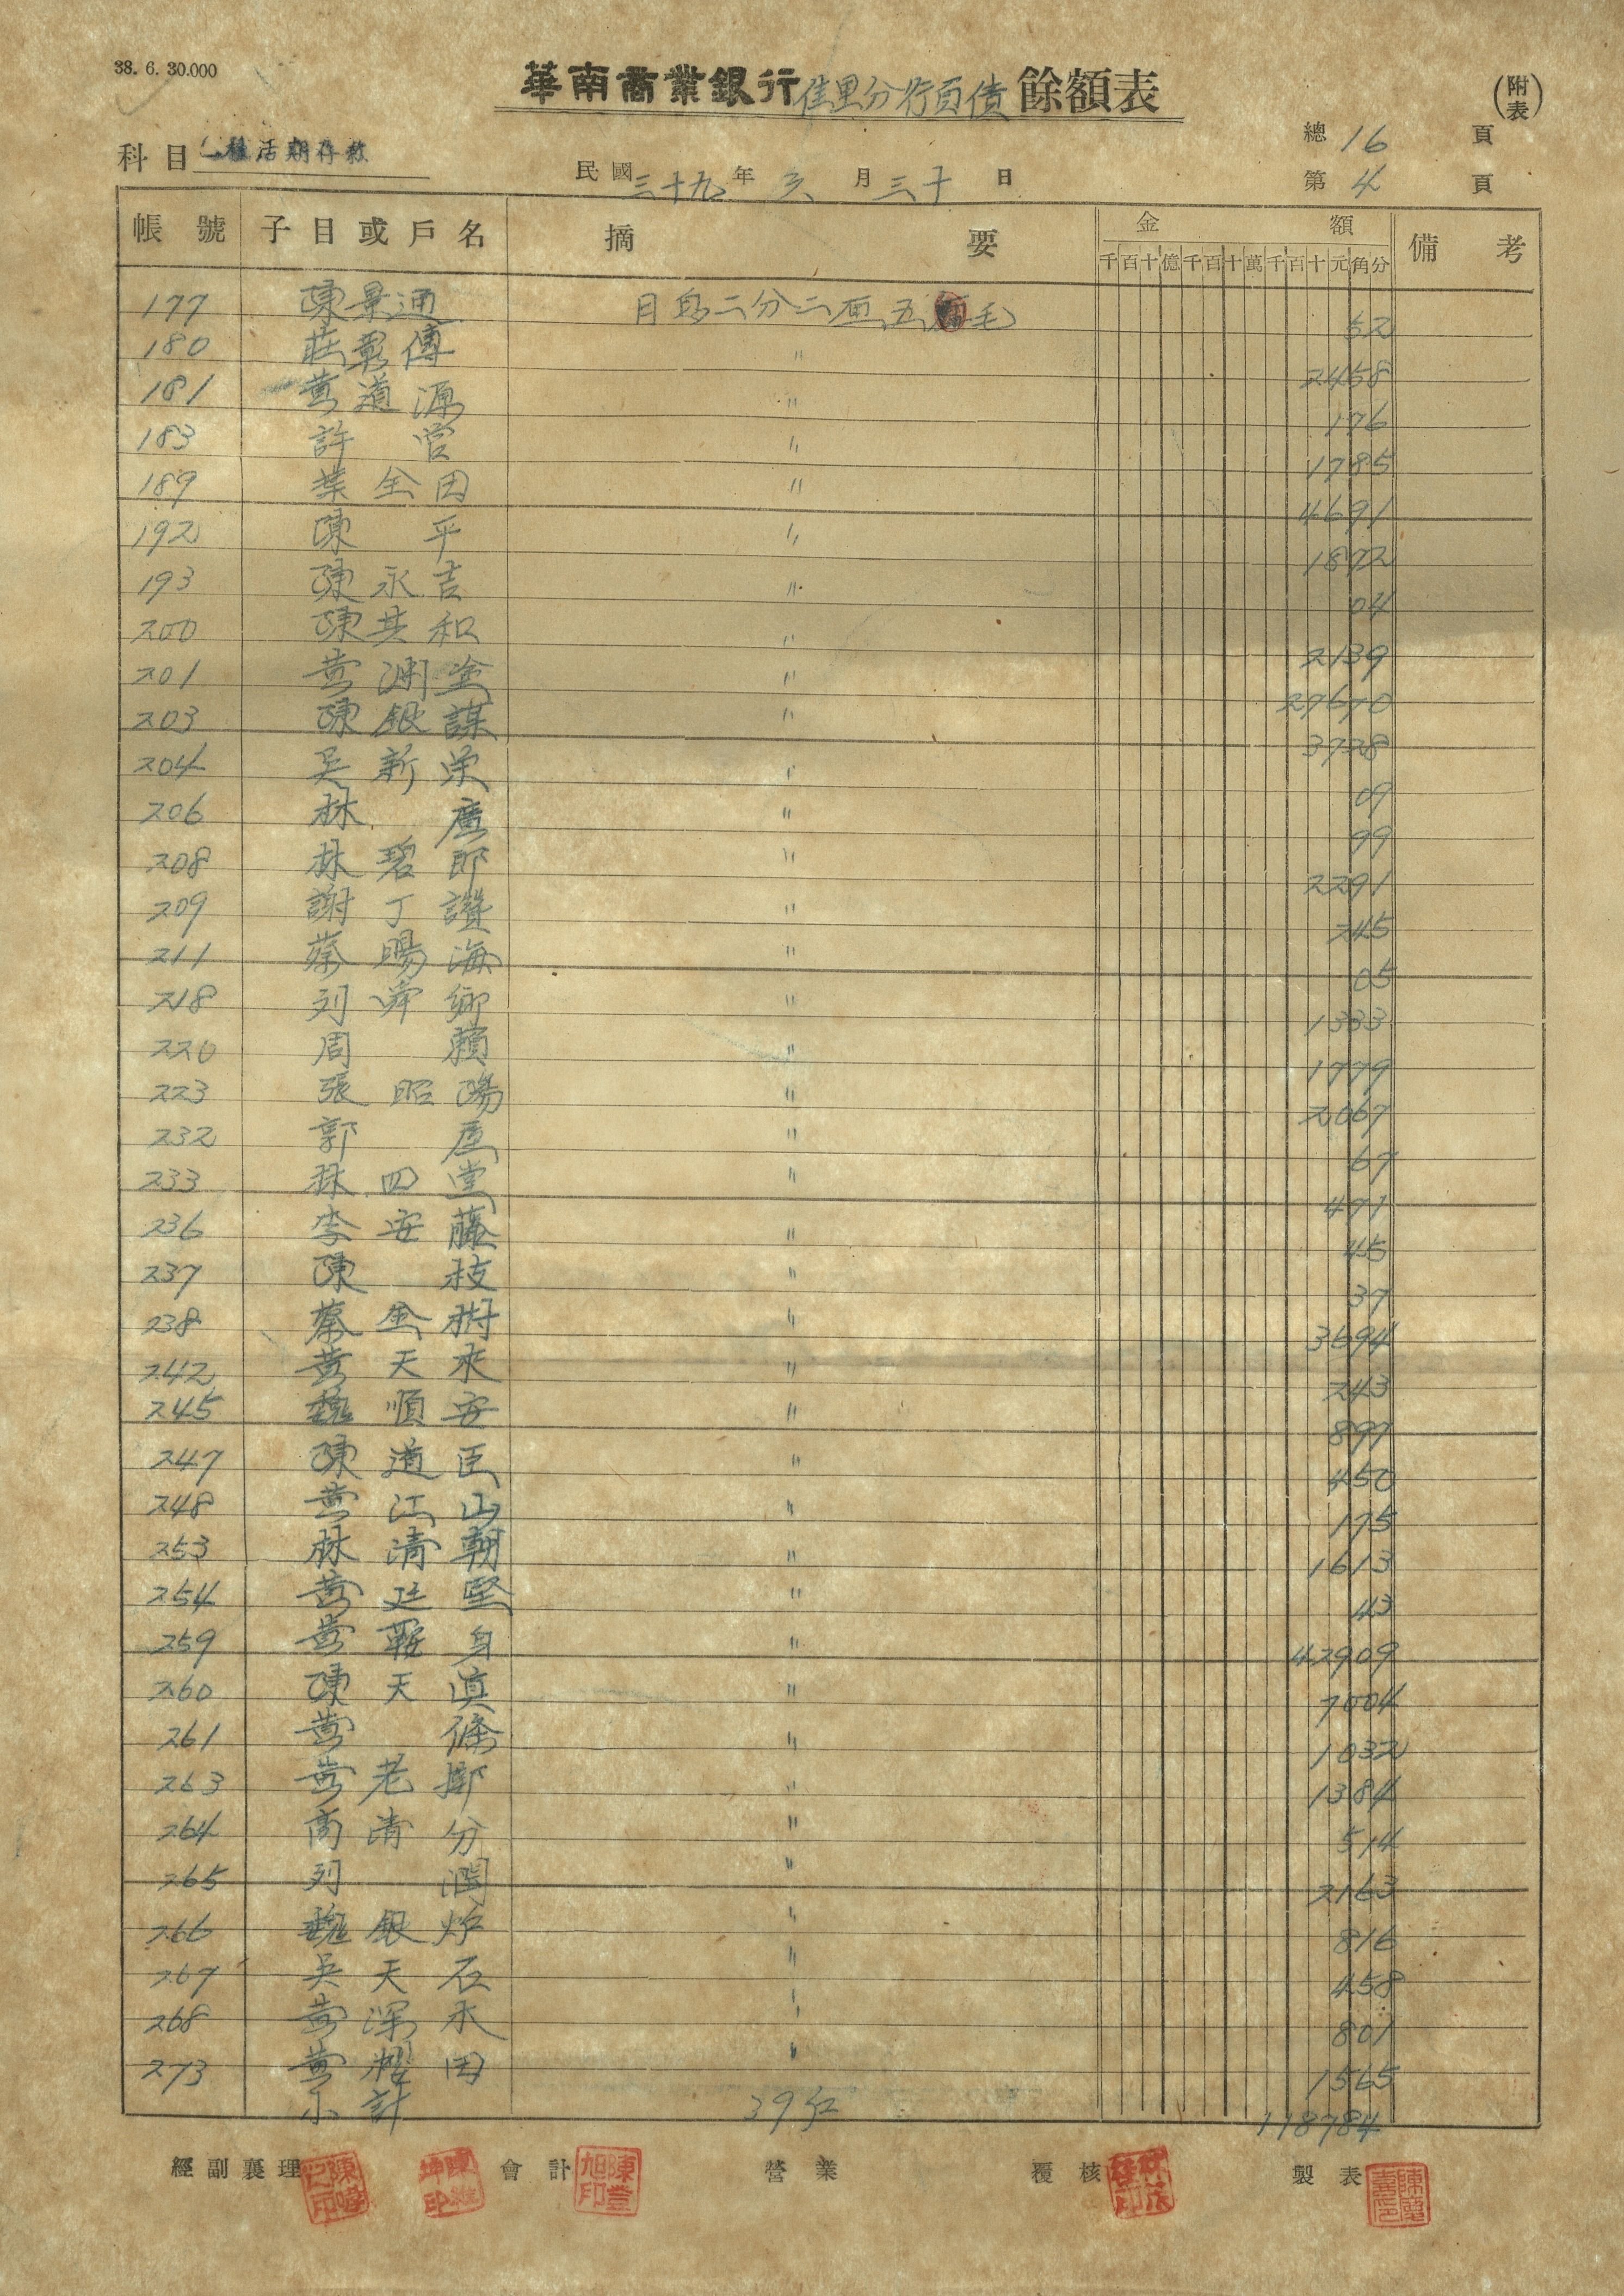 38. 6. 30.000
華南商業銀行佳里分行負債餘額表
(附表)
總16頁
科目 乙種活期存款
民國三十九年六月三十日
第4頁
帳號 子目或戶名 摘要 金額 備考
千百十億千百十萬千百十元角分
177 陳景通 日息二分二厘五毛 52
180 莊彰傳 〃 2458
181 黃道源 〃 176
183 許官 〃 1785
189 葉全田 〃 4691
192 陳平 〃 1872
193 陳永吉 〃 04
200 陳其和 〃 2139
201 黃渊塗 〃 27670
203 陳銀謀 〃 3728
204 吳新榮 〃 09
206 林廣 〃 99
208 林碧郎 〃 2291
209 謝丁讚 〃 245
211 蔡陽海 〃 05
218 列舜卿 〃 1333
220 周賴 〃 1779
223 張昭陽 〃 2067
232 郭 〃 67
233 林四堂 〃 471
236 李安藤 〃 45
237 陳枝 〃 37
238 蔡金樹 〃 3694
242 黃天來 〃 243
245 魏順安 〃 897
247 陳道臣 〃 450
248 黃江山 〃 175
253 林清朝 〃 1613
254 黃廷堅 〃 43
259 黃 身 〃 42909
260 陳天真 〃 7004
261 黃條 〃 1032
263 黃老鄭 〃 1384
264 高清分 〃 514
265 列潤 〃 2163
266 魏銀炉 〃 816
267 吳天石 〃 458
268 黃深永 〃 801
273 黃耀田 〃 1565
小計 39名 118784
經副襄理 會計 營業 覆核 製表